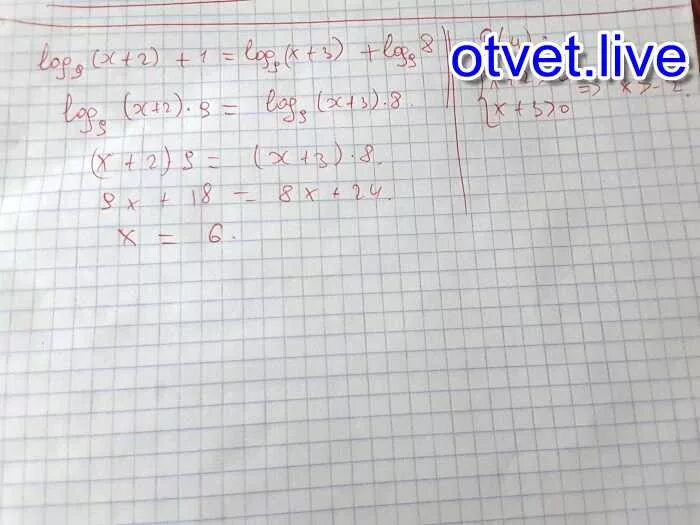 log₉(x+2) + 1 = log₉(x+3) + log₉8
log₉(x+2)·9 = log₉(x+3)·8.
(x+2)9 = (x+3)·8.
9x + 18 = 8x + 24.
x = 6.
otvet.live
=> x>-2.
x+3>0